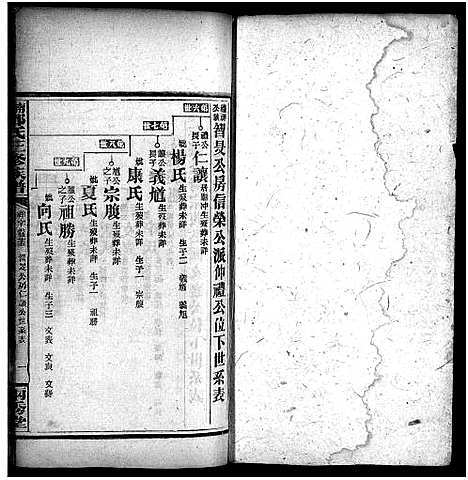 智旻公房信榮公派仲禮公位下世系表
第六世
禮公長子
仁讓
居廟冲生歿葬未詳
妣楊氏
生歿葬未詳 生子二 義馗 義旭
第七世
讓公長子
義馗
生歿葬未詳
妣康氏
生歿葬未詳 生子一 宗腹
第八世
馗公之子
宗腹
生歿葬未詳
妣夏氏
生歿葬未詳 生子一 祖勝
第九世
公之子
祖勝
生歿葬未詳
妣向氏
生歿葬未詳 生子三 文表 文爽
氏三修族譜
智旻公房仁讓公世系表
一